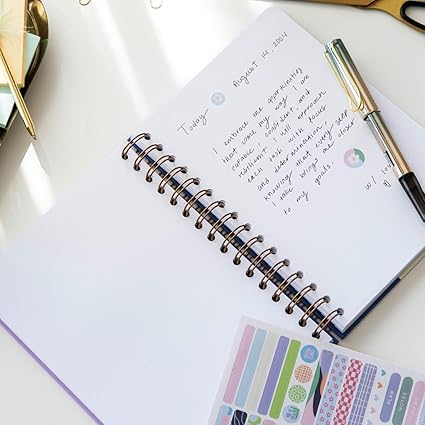 August 14, 2024
Today
I embrace the opportunities
that come my way. I am
capable, confident, and
resilient. I will approach
each task with focus
and determination,
knowing that every step
I take brings me closer
to my goals.
w/
PLAN
NOTES